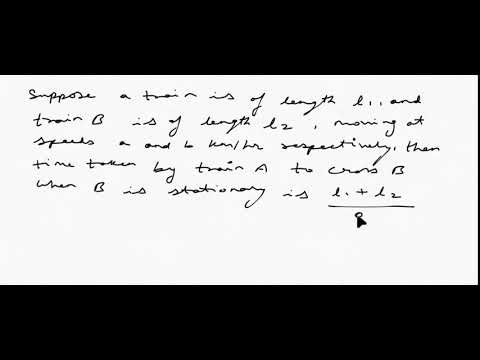 Suppose a train is of length l₁, and
train B is of length l₂, moving at
speeds a and b km/hr respectively, then
time taken by train A to cross B
when B is stationary is l₁ + l₂